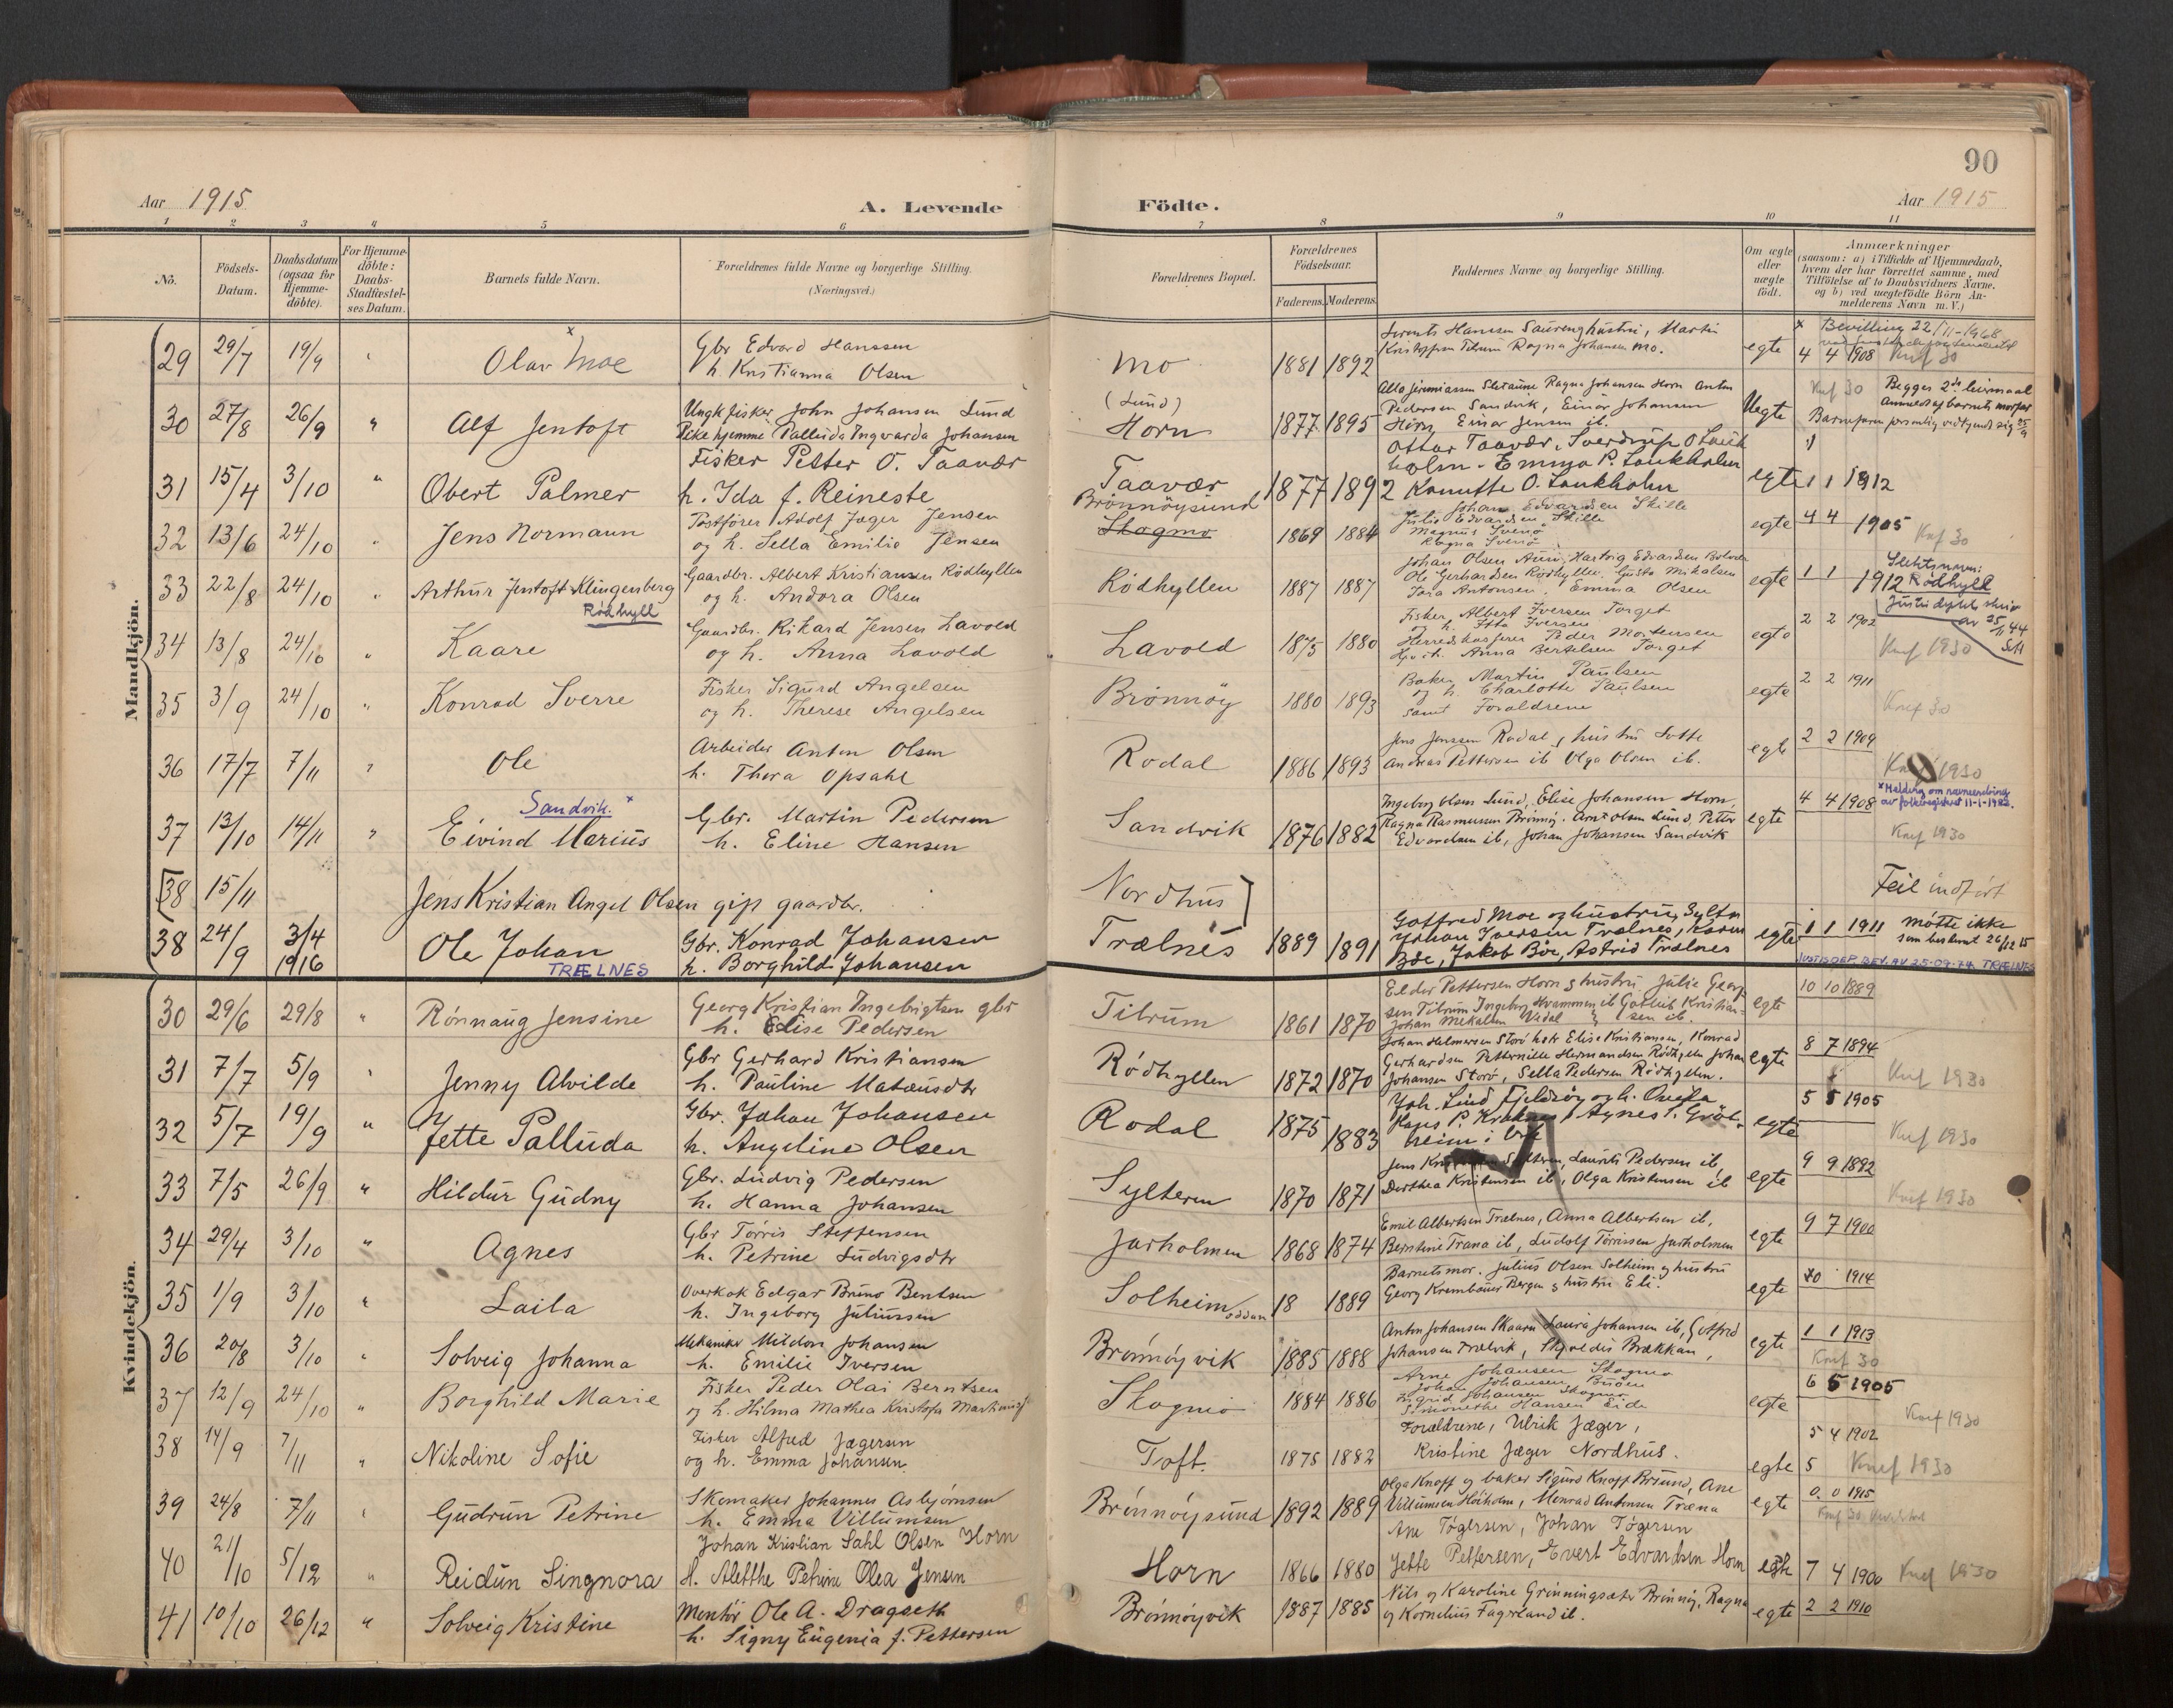 90
Aar 1915
A. Levende
Födte.
Aar 1915
1 2 3 4 5 6 7 8 9 10 11
No.
Födsels-Datum.
Daabsdatum (ogsaa for Hjemme-döbte).
For Hjemme-döbte: Daabs-Stadfæstel-ses Datum.
Barnets fulde Navn.
Forældrenes fulde Navne og borgerlige Stilling.
(Næringsvei.)
Forældrenes Bopæl.
Forældrenes Födselsaar.
Faderens. Moderens.
Faddernes Navne og borgerlige Stilling.
Om ægte eller uægte födt.
Anmærkninger
(saasom: a) i Tilfælde af Hjemmedaab,
hvem der har forrettet samme, med
Tilföielse af to Daabsvidners Navne.
og b) ved uægtefödte Börn An-
melderens Navn m. V.)
Mandkjön.
29 29/7 19/9 " Olav Moe x
Gbr Edvard Hanssen
h. Kristianna Olsen
Mo 1881 1892
Kristoffersen Tilrum Ragna Johansen Mo.
egte 4 4 1908 Knf 30
x Bevilling 22/11-1968
30 27/8 26/9 " Alf Jentoft
Ungk fisker John Johansen Lund
Pike hjemme Palluda Ingvarda Johansen
(Lund)
Horn 1877 1895
Ragna Johansen Horn Anton
Pedersen Sandvik, Einar Johansen
Horn, Einar Jensen ib.
Uegte
Knf 30 Begges 2det leiermaal
Anmeldt af barnets morfar
Barnefaren personlig vedtgendt sig 25/9
31 15/4 3/10 " Obert Palmer
Fisker Petter O. Taavær
h. Ida f. Reineste
Taavær 1877 1892
Ottar Taavær, Sverdrup O Lauk
holm - Emma P. Laukholm
Kanutte O. Laukholm
egte 1 1 1912
32 13/6 24/10 " Jens Normann
Postfører Adolf Jæger Jensen
og h. Sella Emilie Jensen
Brønnøysund
Skogmo 1869 1884
Johan Edvardsen Skille
Julie Edvardsen Skille
Magnus Svenø
Ragna Svenø
egte 4 4 1905 Knf 30
33 22/8 24/10 " Arthur Jentoft Klingenberg
Rødhyll
Gaardbr. Albert Kristiansen Rødhyllen
og h. Andora Olsen
Rødhyllen 1887 1887
Johan Olsen Aune, Hartvig Edvardsen
Ole Gerhardsen Rødhyllen. Gusta Mikalsen
Tora Antonsen, Emma Olsen
egte 1 1 1912
Slektsnavn:
Rødhyll
av 25/11 44
34 13/8 24/10 " Kaare
Gaardbr. Rikard Jensen Lavold
og h. Anna Lavold
Lavold 1875 1880
Fisker Albert Iversen Torget
og h. Itta Iversen
Herredskasserer Peder Mortensen
Anna Bertelsen Torget
egte 2 2 1902 Knf 1930
35 3/9 24/10 " Konrad Sverre
Fisker Sigurd Angelsen
og h. Therese Angelsen
Brønnøy 1880 1893
Baker Martin Paulsen
og h. Charlotte Paulsen
samt Forældrene
egte 2 2 1911 Knf 30
36 17/7 7/11 " Ole
Arbeider Anton Olsen
h. Thora Opsahl
Rodal 1886 1893
Jens Jenssen Rodal, hustru Lotte
Andreas Pettersen ib Olga Olsen ib.
egte 2 2 1909 Knf 1930
37 13/10 14/11 " Eivind Marius
Sandvik. x
Gbr. Martin Pedersen
h. Eline Hansen
Sandvik 1876 1882
Ingeborg Olsen Lund, Elise Johansen Horn,
Ragna Rasmussen Brønnøy. Arnt Olsen Lund, Petter
Edvardsen ib, Johan Johansen Sandvik
egte 4 4 1908
x Melding om navneendring
av folkeregistret 11-1-1982.
Knf 1930
[38 15/11 Jens Kristian Angel Olsen gift gaardbr.
Nordhus] Feil indført
38 24/9 3/4 1916 Ole Johan
TRÆLNES
Gbr. Konrad Johansen
h. Borghild Johansen
Trælnes 1889 1891
Gotfred Moe og hustru, Syltern
Johan Iversen Trælnes, Karen
Bøe, Jakob Bøe, Astrid Trælnes
egte 1 1 1911
møtte ikke
som bestemt 26/12 15
JUSTISDEP. BEV. AV 25-09-74 TRÆLNES
Kvindekjön.
30 29/6 29/8 " Rønnaug Jensine
Georg Kristian Ingebrigtsen gbr
h. Elise Pedersen
Tilrum 1861 1870
Elder Pettersen Horn & hustru Julie Georg
sen Tilrum Ingeborg Hvammen ib Gotlieb Kristian-
Johan Mikalsen sen ib.
egte 10 10 1889
31 7/7 5/9 " Jenny Alvilde
Gbr Gerhard Kristiansen
h. Pauline Matæusdtr
Rødhyllen 1872 1870
Johan Helmersen Storø Elise Kristiansen, Konrad
Gerhardsen Petternille Hermandsen Rødhyllen Johan
Johansen Storø, Sella Pedersen Rødhyllen.
egte 8 7 1894 Knf 1930
32 5/7 19/9 " Jette Palluda
Gbr. Johan Johansen
h. Angeline Olsen
Rodal 1875 1883
Joh. Lind Fjeldsøy og h.
Hans P. Agnes i. Grøt-
heim i
egte 5 5 1905 Knf 1930
33 7/5 26/9 " Hildur Gudny
Gbr. Ludvig Pedersen
h. Hanna Johansen
Sylteren 1870 1871
Jens Sylteren, Laurits Pedersen ib,
Dorthea Kristensen ib, Olga Kristensen ib
egte 9 9 1892 Knf 1930
34 29/4 3/10 " Agnes
Gbr Tørris Steffensen
h. Petrine Ludvigsdtr
Jarholmen 1868 1874
Emil Albertsen Trælnes, Anna Albertsen ib,
Berntine Trana ib, Ludolf Tørrissen Jarholmen
egte 9 7 1900
35 1/9 3/10 " Laila
Overkok Edgar Bruno Bentsen
h. Ingeborg Juliussen
Solheim 18 1889
Barnets mor. Julius Olsen Solheim & hustru
Georg Krembauer Bergen & hustru Eli.
egte 1914
36 20/8 3/10 " Solveig Johanna
Mekaniker Mildor Johansen
h. Emilie Iversen
Brønnøyvik 1885 1888
Anton Johansen Skaaren Laura Johansen ib, Gotfred
Johansen Trælvik, Brækkan,
egte 1 1 1913
Knf 30
37 12/9 24/10 " Borghild Marie
Fisker Peder Olai Berntsen
og h. Hilma Mathea Kristofa
Skogmo 1884 1886
Arne Johansen Skogmo
Johan Johansen
Sigrid Johansen Skogmo
Simonethe Hansen Eide
egte 6 5 1905 Knf 1930
38 14/9 7/11 " Nikoline Sofie
Fisker Alfred Jægersen
og h. Emma Johansen
Toft. 1875 1882
Forældrene, Ulrik Jæger,
Kristine Jæger Nordhus.
egte 5 4 1902
5 Knf 1930
39 24/8 7/11 " Gudrun Petrine
Skomaker Johannes Asbjørnsen
h. Emma Villumsen
Brønnøysund 1892 1889
Olga Knoff og baker Sigurd Knoff Brsund, Ane
Villumsen Høiholm, Menrad Antonsen Træna
egte 0. 0 1915
Knf 30
40 21/10 5/12 " Reidun Singnora
Johan Kristian Sahl Olsen Horn
H. Aletthe Petrine Olea Jensen
Horn 1866 1880
Ane Tøgersen, Johan Tøgersen
Jette Pettersen, Evert Edvardsen Horn
egte 7 4 1900 Knf 1930
41 10/10 26/12 " Solveig Kristine
Montør Ole A. Dragseth
h. Signy Eugenia f. Pettersen
Brønnøyvik 1887 1885
Nils og Karoline Grønningsæter Brønnøy, Ragna
og Kornelius Fagerland ib.
egte 2 2 1910